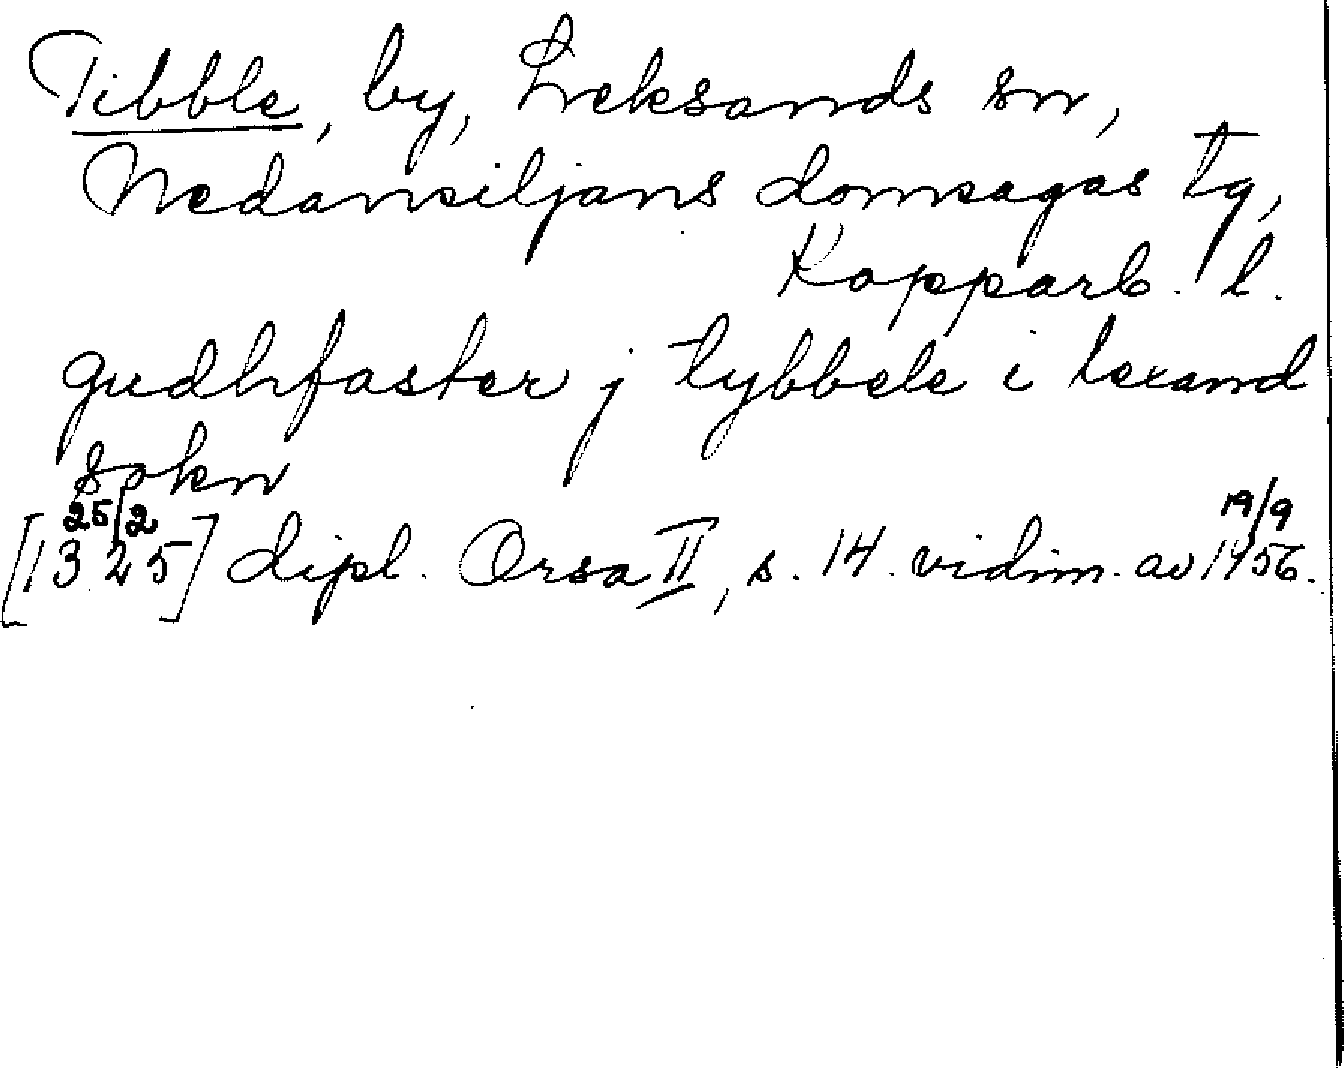 Tibble, by, Leksands sn,
Nedansiljans domsagas tg,
Kopparb. l.
gudhfaster j tybbele i lexand
sokn
25/2 19/9
[1325] dipl. Orsa II, s. 14. vidim. av 1456.